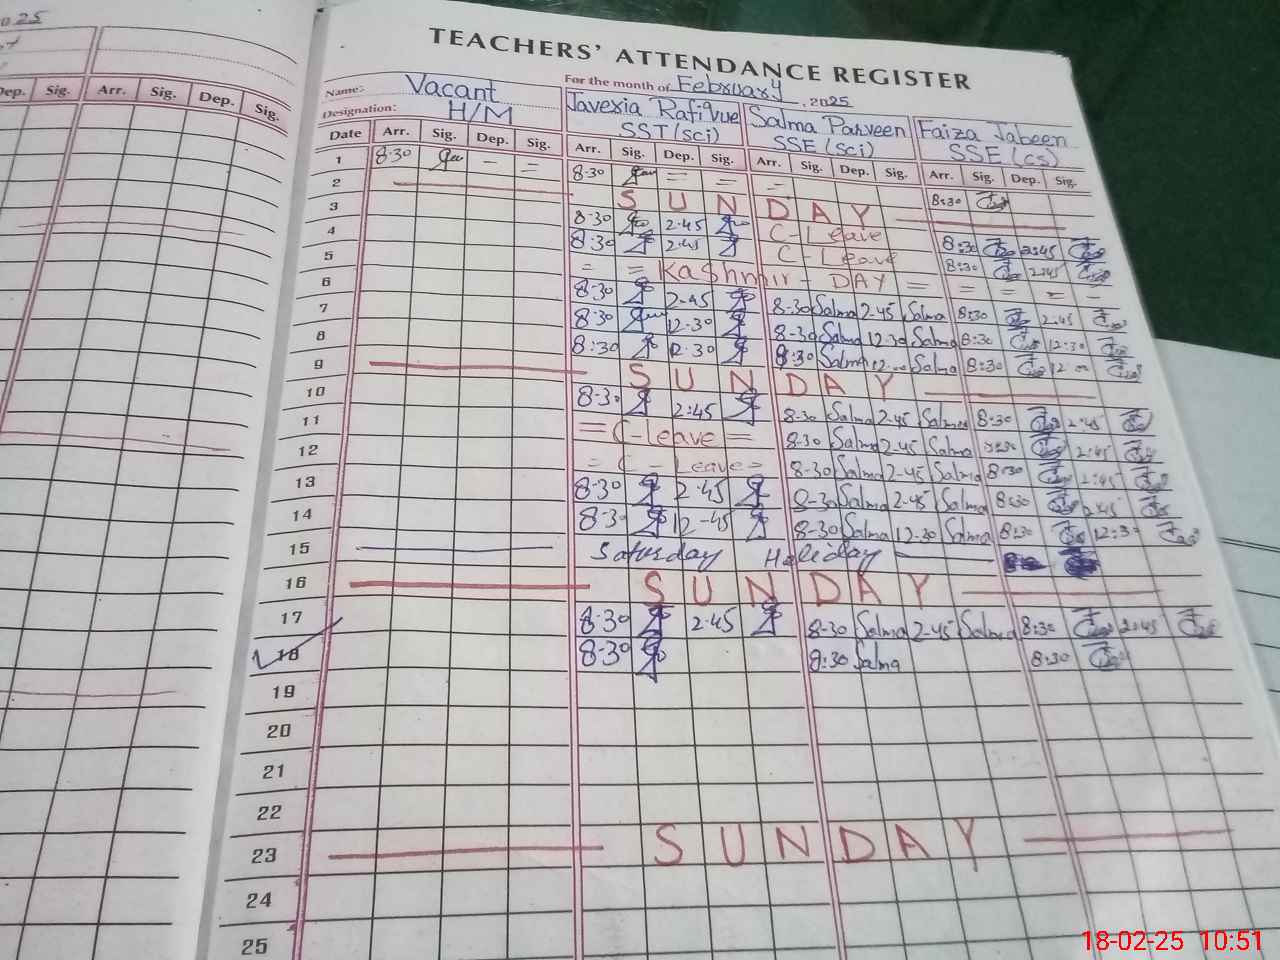 2025
TEACHERS' ATTENDANCE REGISTER
Name: Vacant For the month of February, 2025
Designation: H/M Javeria Rafique SST (sci) Salma Parveen SSE (sci) Faiza Jabeen SSE (cs)
Dep. Sig. Arr. Sig. Dep. Sig.
Date Arr. Sig. Dep. Sig. Arr. Sig. Dep. Sig. Arr. Sig. Dep. Sig. Arr. Sig. Dep. Sig.
1 8:30 - = 8:30 = = = 8:30
2 SUNDAY
3 8:30 2.45 C-Leave 8:30 2:45
4 8:30 2:45 C-Leave 8:30 2:45
5 = = Kashmir - DAY = = = = -
6 8:30 2-45 8-30 Salma 2-45 Salma 8:30 2.45
7 8:30 12.30 8-30 Salma 12.30 Salma 8:30 12:30
8 8:30 12.30 8:30 Salma 12.00 Salma 8:30 12:00
9 SUNDAY
10 8:30 2:45 8-30 Salma 2-45 Salma 8:30 2:45
11 = C-leave = 8-30 Salma 2.45 Salma 8:30 2:45
12 = C-Leave = 8-30 Salma 2-45 Salma 8:30 2:45
13 8:30 2.45 8-30 Salma 2-45 Salma 8:30 2:45
14 8:30 12-45 8-30 Salma 12-30 Salma 8:30 12:30
15 Saturday Holiday
16 SUNDAY
17 8:30 2:45 8-30 Salma 2-45 Salma 8:30 2:45
18 8:30 8:30 Salma 8:30
19
20
21
22
23 SUNDAY
24
25
18-02-25 10:51